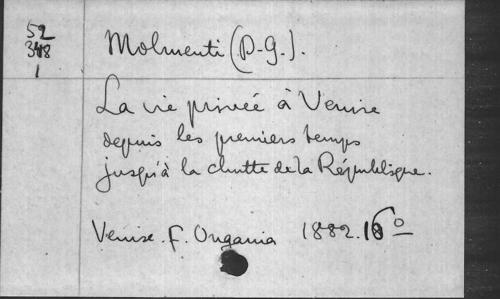 52
348
1
Molmenti (P-G.).
La vie privée à Venise
depuis les premiers temps
jusqu'à la chutte de la République.
Venise. F. Ongania 1882. 16º